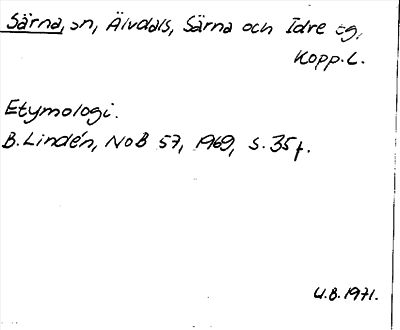 Särna, sn, Älvdals, Särna och Idre tg,
Kopp.L.
Etymologi.
B. Lindén, NoB 57, 1969, s. 35 f.
U.B. 1971.